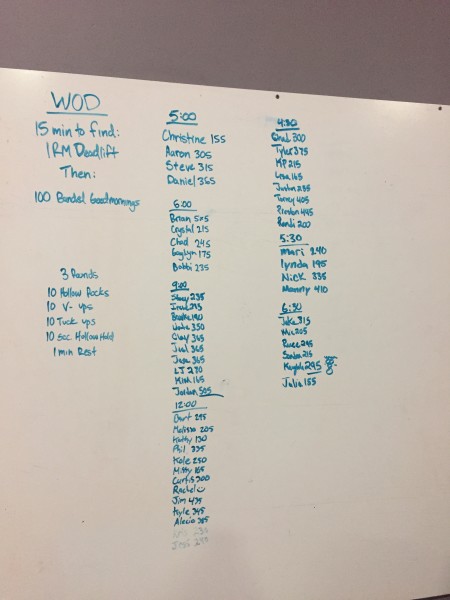 WOD
15 min to find:
1RM Deadlift
Then:
100 Banded Goodmornings
3 Rounds
10 Hollow Rocks
10 V-ups
10 Tuck ups
10 sec Hollow Hold
1 min Rest
5:00
Christine 155
Aaron 305
Steve 315
Daniel 365
6:00
Brian 525
Crystal 215
Chad 245
Gaylyn 175
Bobbi 235
9:00
Stacy 235
Brooke 190
350
Clay 365
Joel 365
Jase 365
LT 270
Kish 165
Jordan 505
12:00
Burt 295
Melissa 205
Kathy 130
Phil 335
Kole 250
Missy 165
Curtis 300
Rachel
Jim 435
Kyle 345
Alecio 385
4:30
300
Tyler 375
KP 215
Lisa 165
Justin 285
Torrey 405
Preston 445
Randi 200
5:30
Mari 240
lynda 195
Nick 335
Manny 410
6:30
Jake 315
205
295
215
295
Julia 155